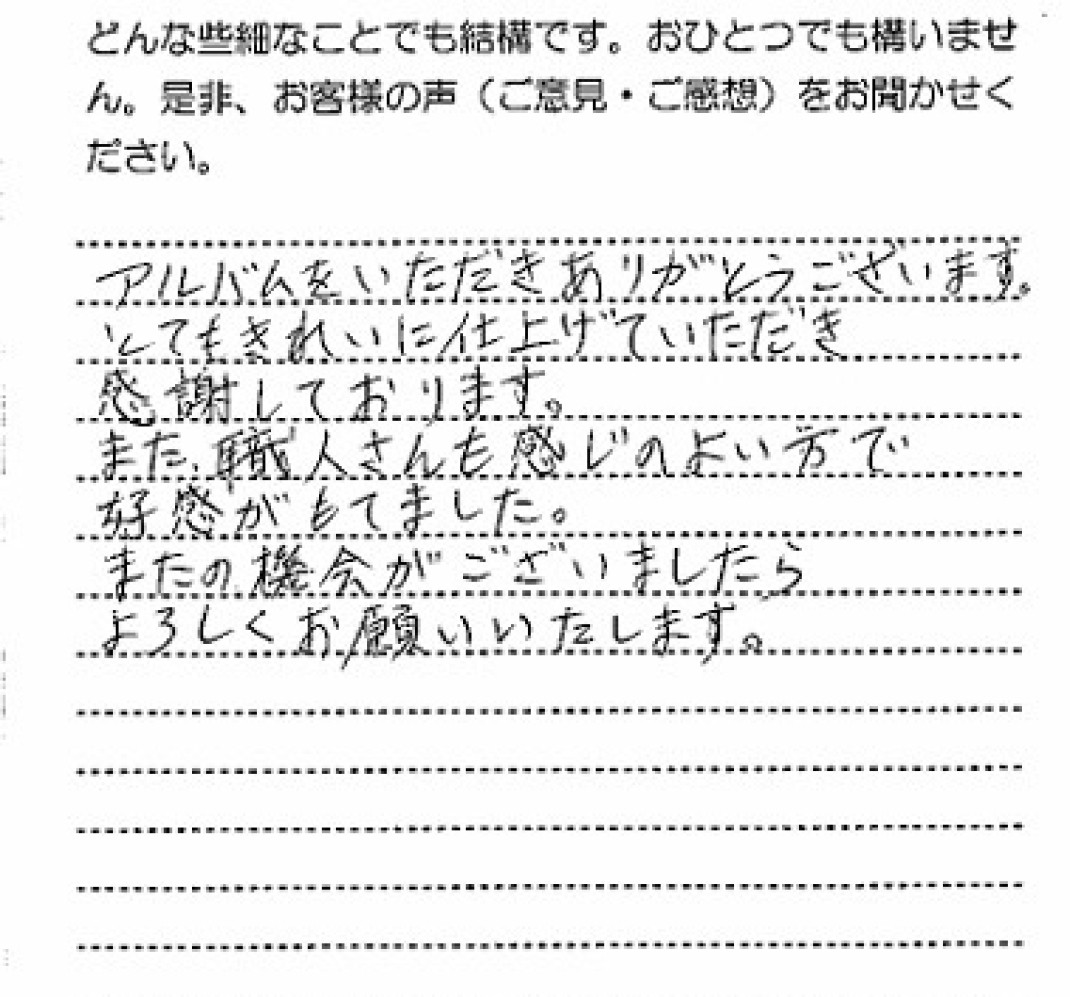 どんな些細なことでも結構です。おひとつでも構いませ
ん。是非、お客様の声（ご意見・ご感想）をお聞かせく
ださい。
アルバムをいただきありがとうございます。
とてもきれいに仕上げていただき
感謝しております。
また、職人さんも感じのよい方で
好感がもてました。
またの機会がございましたら
よろしくお願いいたします。